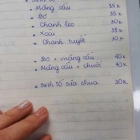 • Mãng cầu 35k
• Bơ 35k
• Chanh leo 30k
• Xoài 35k
• Chanh tuyết 30k
• Bơ + mãng cầu 40k
• Mãng cầu + chuối 40k
• Sinh tố sữa chua 30k